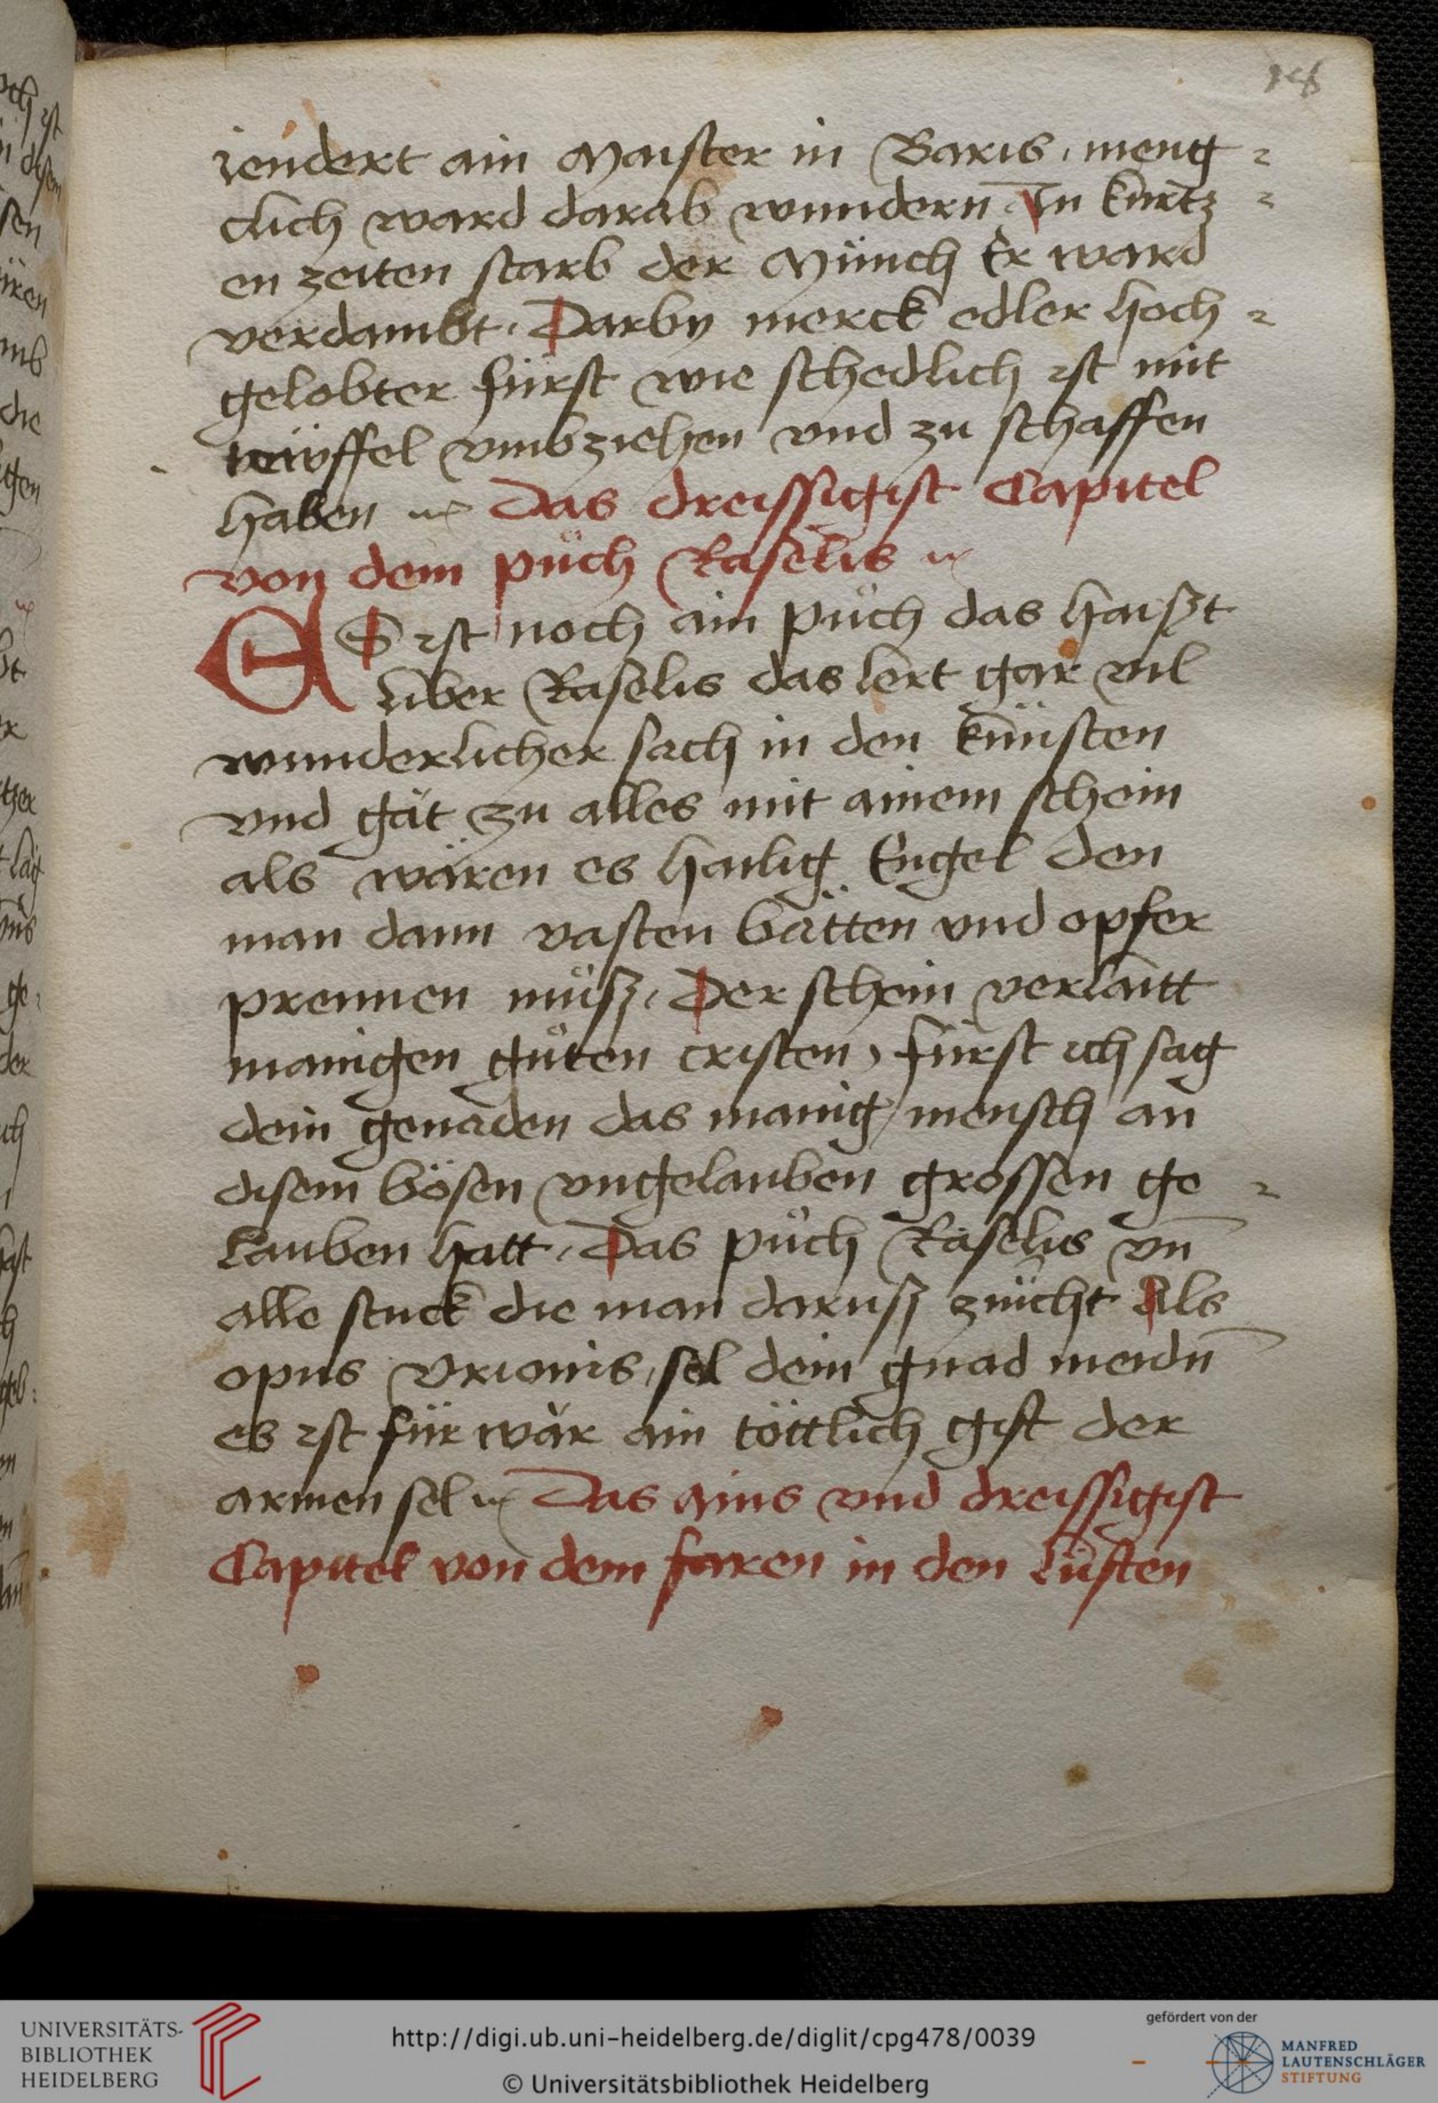 18
iendert ain Maister in Baris, meng⸗
clich ward darab wundern In kurtz⸗
en zeiten starb der Münch Er ward
verdambt. Darby merck edler hoch⸗
gelobter fürst wie schedlich ist mit
teüffel vmbziehen vnd zu schaffen
haben Das dreissigist Capitel
von dem půch Raselis
ES ist noch ain půch das haißt
Liber Raselis das lert gar vil
wunderlicher sach in den künsten
vnd găt zu alles mit ainem schein
als wären es hailig Engel den
man dann vasten bätten vnd opfer
prennen můß. Der schein verlaitt
manigen gůten cristen, fürst ich sag
dein genaden das manig mensch an
disem bösen vngelauben grossen ge⸗
lauben hatt. Das půch Raselis vn̄
alle stuck die man daruß zücht Als
opus vrionis, sol dein gnad meidn̄
es ist für wăr ain töttlich gift der
armen sel Das ains vnd dreissigist
Capitel von dem faren in den lüften
UNIVERSITÄTS-
BIBLIOTHEK
HEIDELBERG
http://digi.ub.uni-heidelberg.de/diglit/cpg478/0039
© Universitätsbibliothek Heidelberg
gefördert von der
MANFRED
LAUTENSCHLÄGER
STIFTUNG